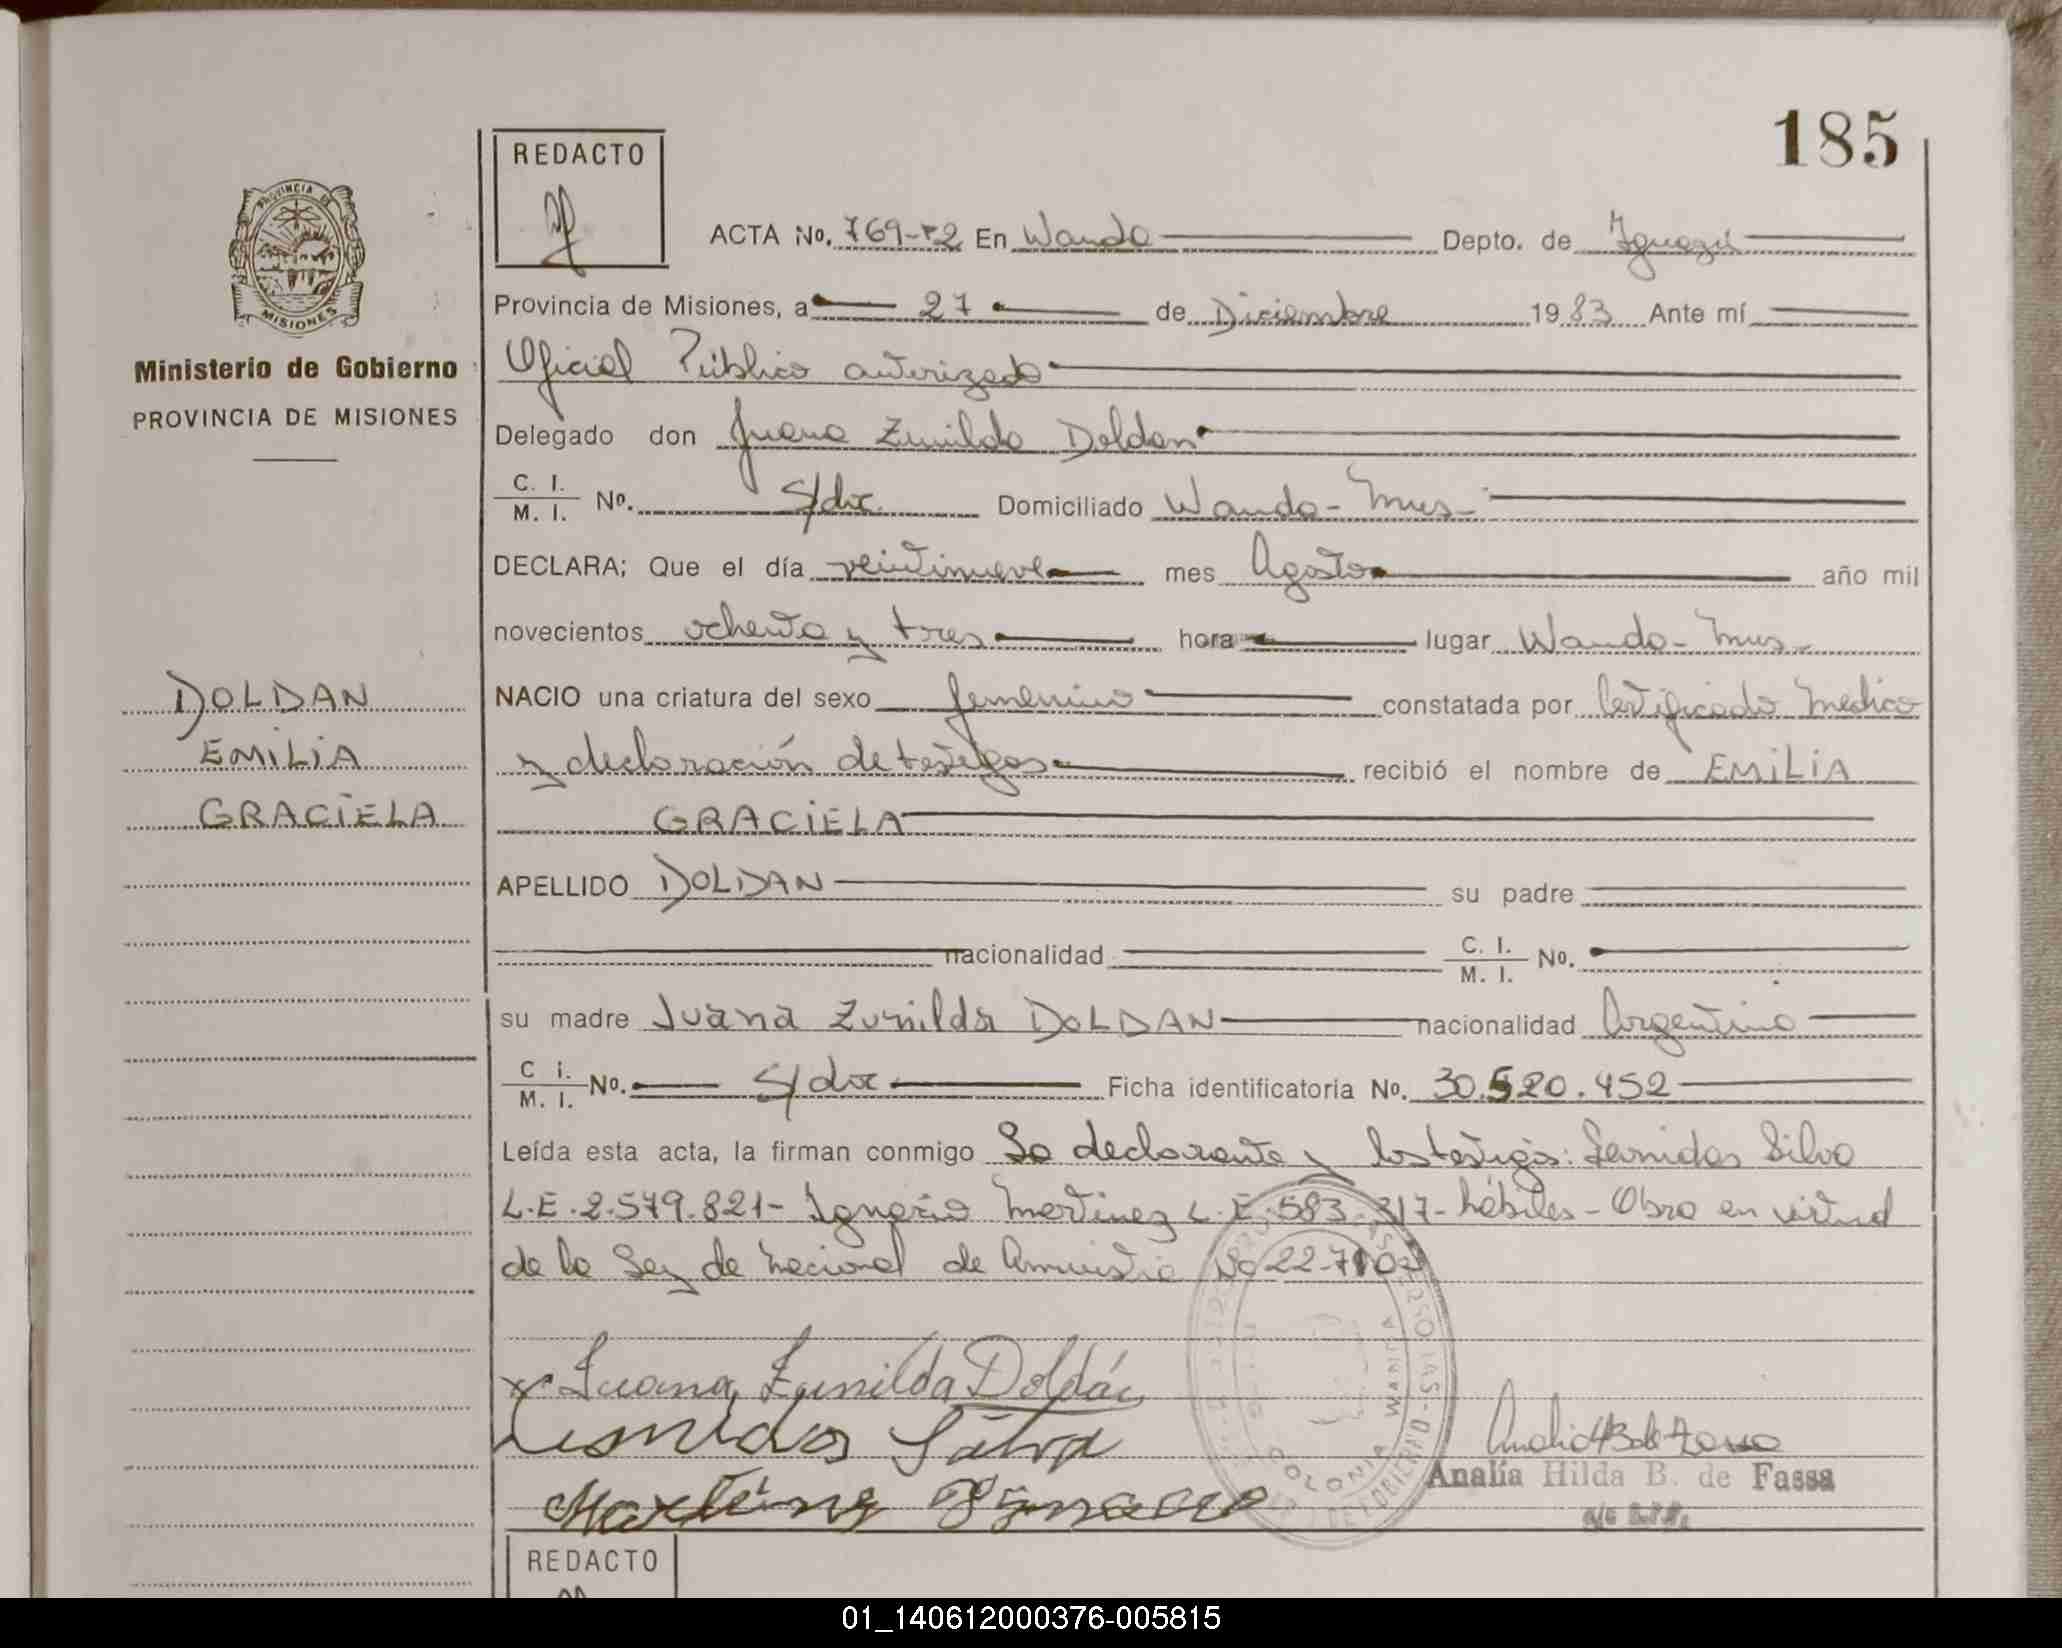 185
REDACTO
PROVINCIA DE
MISIONES
Ministerio de Gobierno
PROVINCIA DE MISIONES
ACTA No. 769-T2 En Wanda Depto. de Iguazú
Provincia de Misiones, a 27 de Diciembre 1983 Ante mí
Oficial Público autorizado
Delegado don Juana Zunilda Doldan
C. I. / M. I. No. S/doc. Domiciliado Wanda- Mnes-
DECLARA; Que el día veintinueve mes Agosto año mil
novecientos ochenta y tres hora lugar Wanda- Mnes-
DOLDAN
EMILIA
GRACIELA
NACIO una criatura del sexo femenino constatada por Certificado Medico
y declaración de testigos recibió el nombre de EMILIA
GRACIELA
APELLIDO DOLDAN su padre
nacionalidad C. I. / M. I. No.
su madre Juana Zunilda DOLDAN nacionalidad Argentina
C i. / M. I. No. S/doc Ficha identificatoria No. 30.520.452
Leída esta acta, la firman conmigo La declarante y los testigos: Leonidas Silva
L.E.2.579.821- Ignacio Martinez L.E. 583.317- hábiles- Obra en virtud
de la Ley de Nacional de Amnistia No 22.710
x Juana Zunilda Doldán
Leonidas Silva
Martinez Ignacio
COLONIA WANDA
Analía Hilda B. de Fassa
REDACTO
01_140612000376-005815